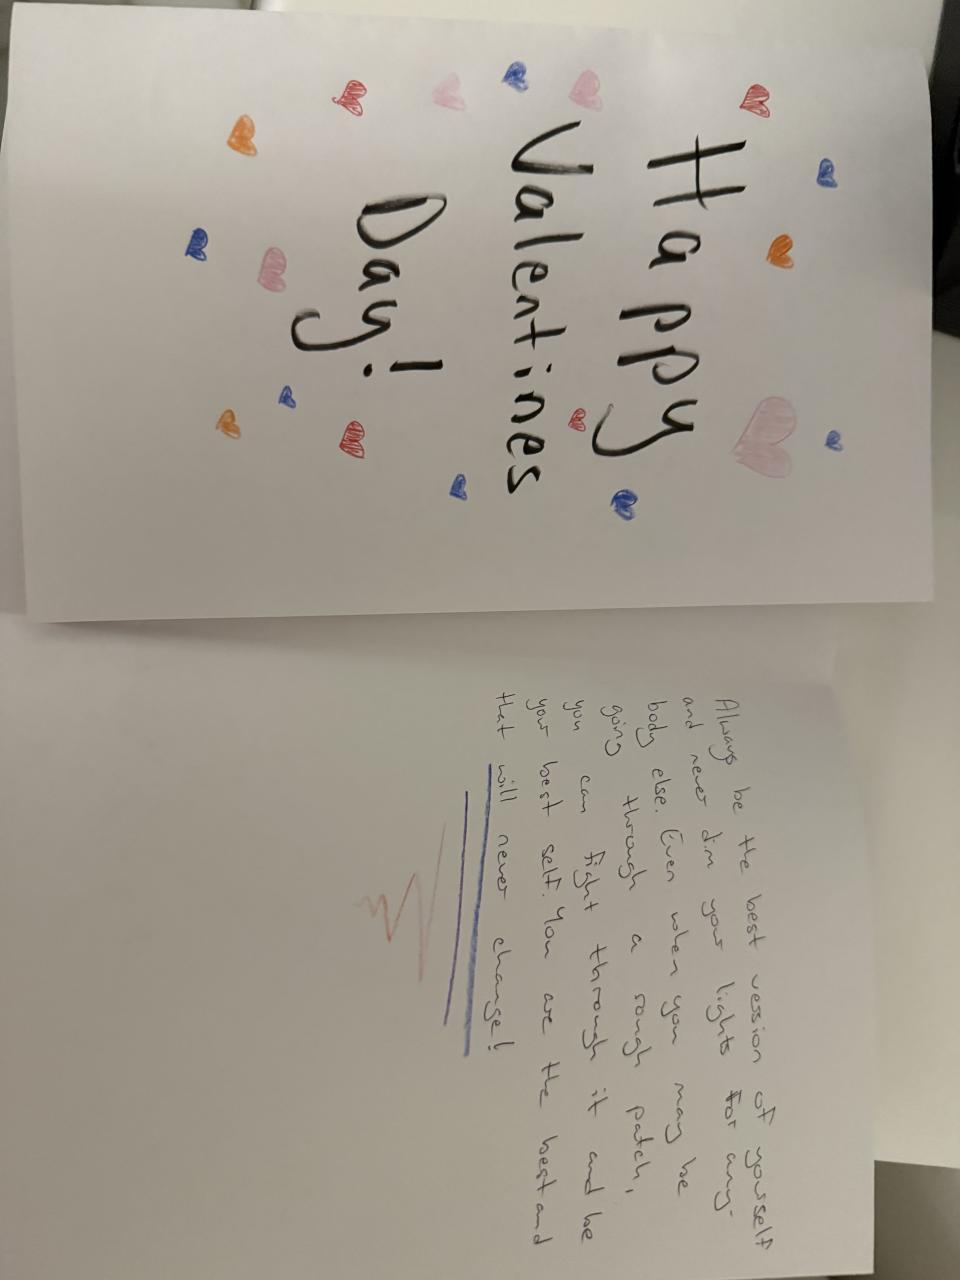 Happy
Valentines
Day!
Always be the best version of yourself
and never dim your lights for any-
body else. Even when you may be
going through a rough patch,
you can fight through it and be
your best self. You are the best and
that will never change!